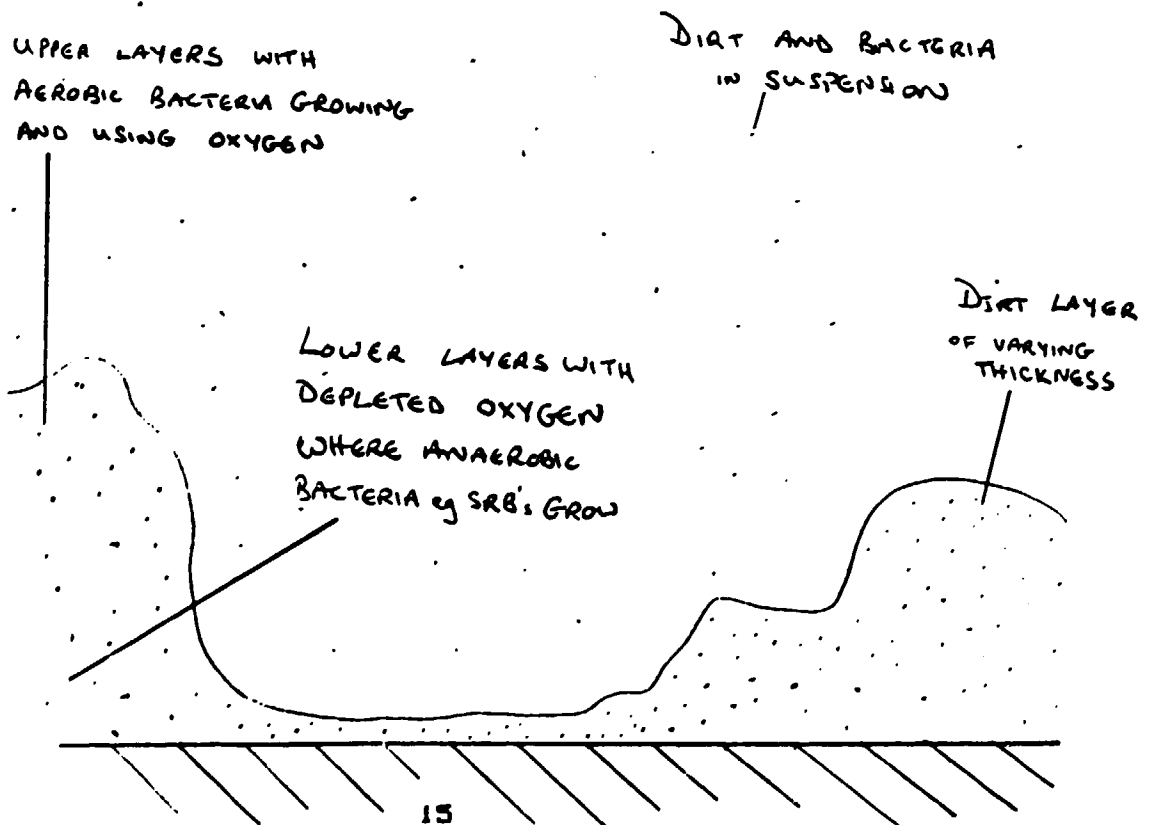 UPPER LAYERS WITH
AEROBIC BACTERIA GROWING
AND USING OXYGEN
DIRT AND BACTERIA
IN SUSPENSION
DIRT LAYER
OF VARYING
THICKNESS
LOWER LAYERS WITH
DEPLETED OXYGEN
WHERE ANAEROBIC
BACTERIA eg SRB's GROW
15